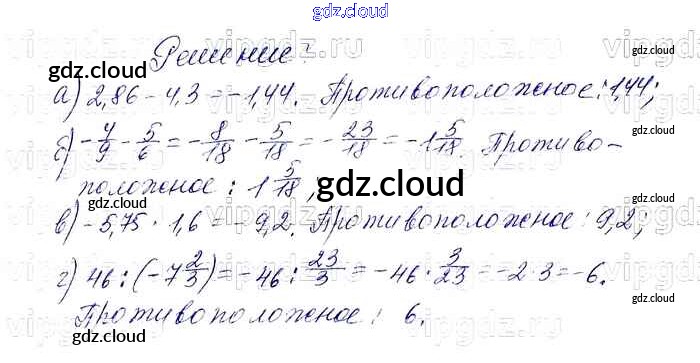 gdz.cloud
Решение:
gdz.cloud gdz.cloud
а) 2,86 - 4,3 = -1,44. Противоположное: 1,44;
б) -4/9 - 5/6 = -8/18 - 15/18 = -23/18 = -1 5/18. Противо-
положное: 1 5/18;
gdz.cloud gdz.cloud
gdz.cloud
в) -5,75 · 1,6 = -9,2. Противоположное: 9,2;
gdz.cloud gdz.cloud
г) 46 : (-7 2/3) = -46 : 23/3 = -46 · 3/23 = -2·3 = -6.
gdz.cloud gdz.cloud
Противоположное: 6.
gdz.cloud